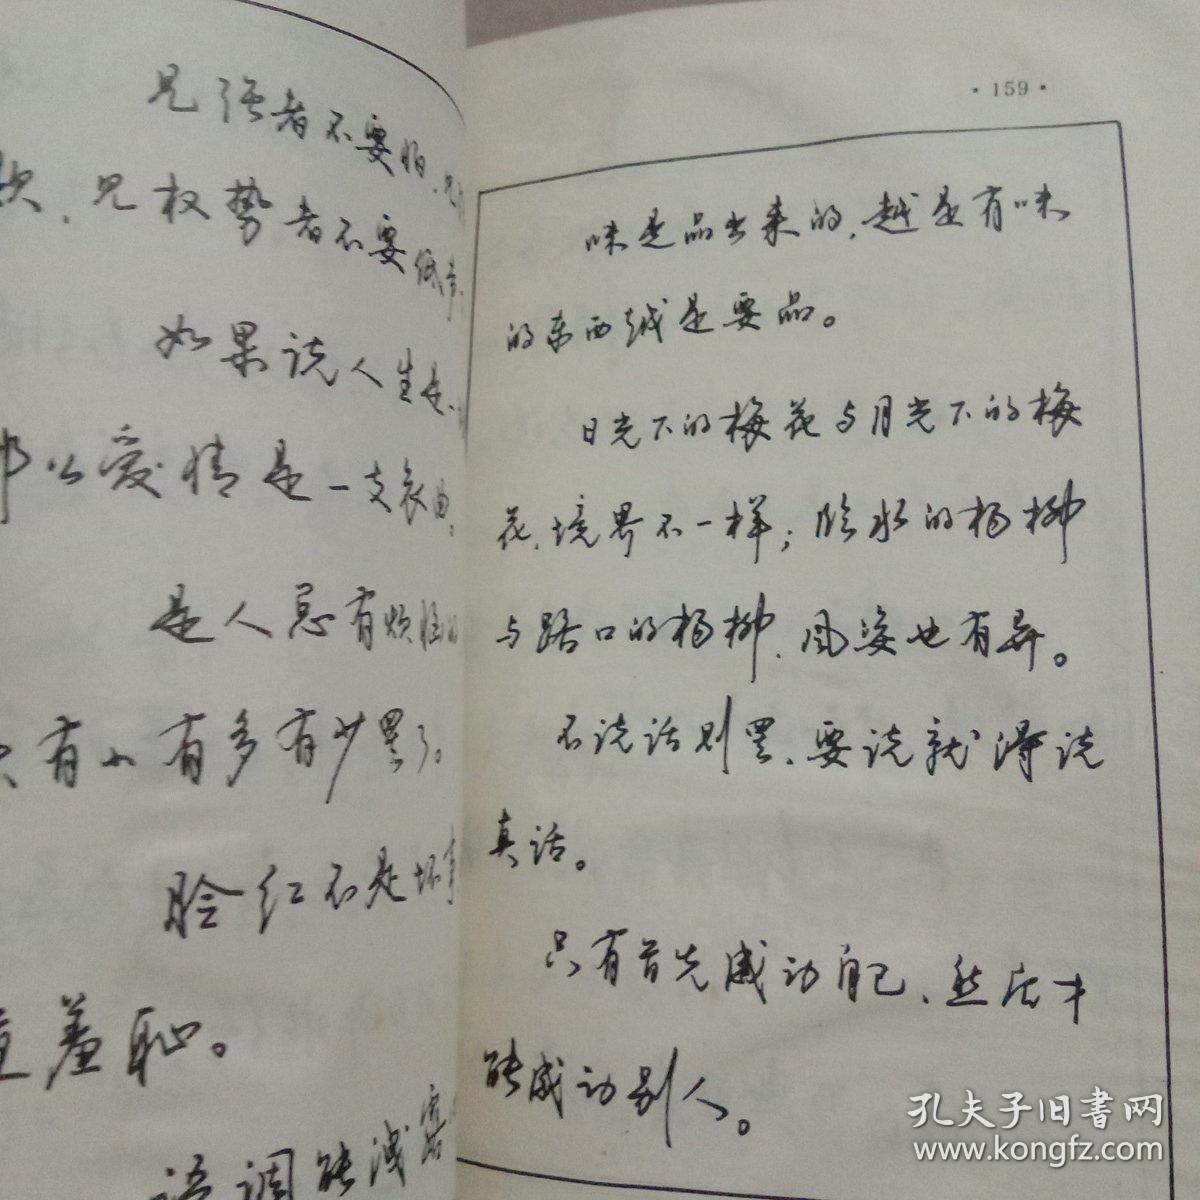 见强者不要怕、见
、见权势者不要低
如果说人生是
么爱情是一支哀曲。
是人总有烦恼
有小有多有少罢了。
脸红不是坏事
羞耻。
语调能泄露
·159·
味是品出来的，越是有味
的东西越是要品。
日光下的梅花与月光下的梅
花，境界不一样；临水的杨柳
与路口的杨柳，风姿也有异。
不说话则罢、要说就得说
真话。
只有首先感动自己、然后才
能感动别人。
孔夫子旧書网
www.kongfz.com